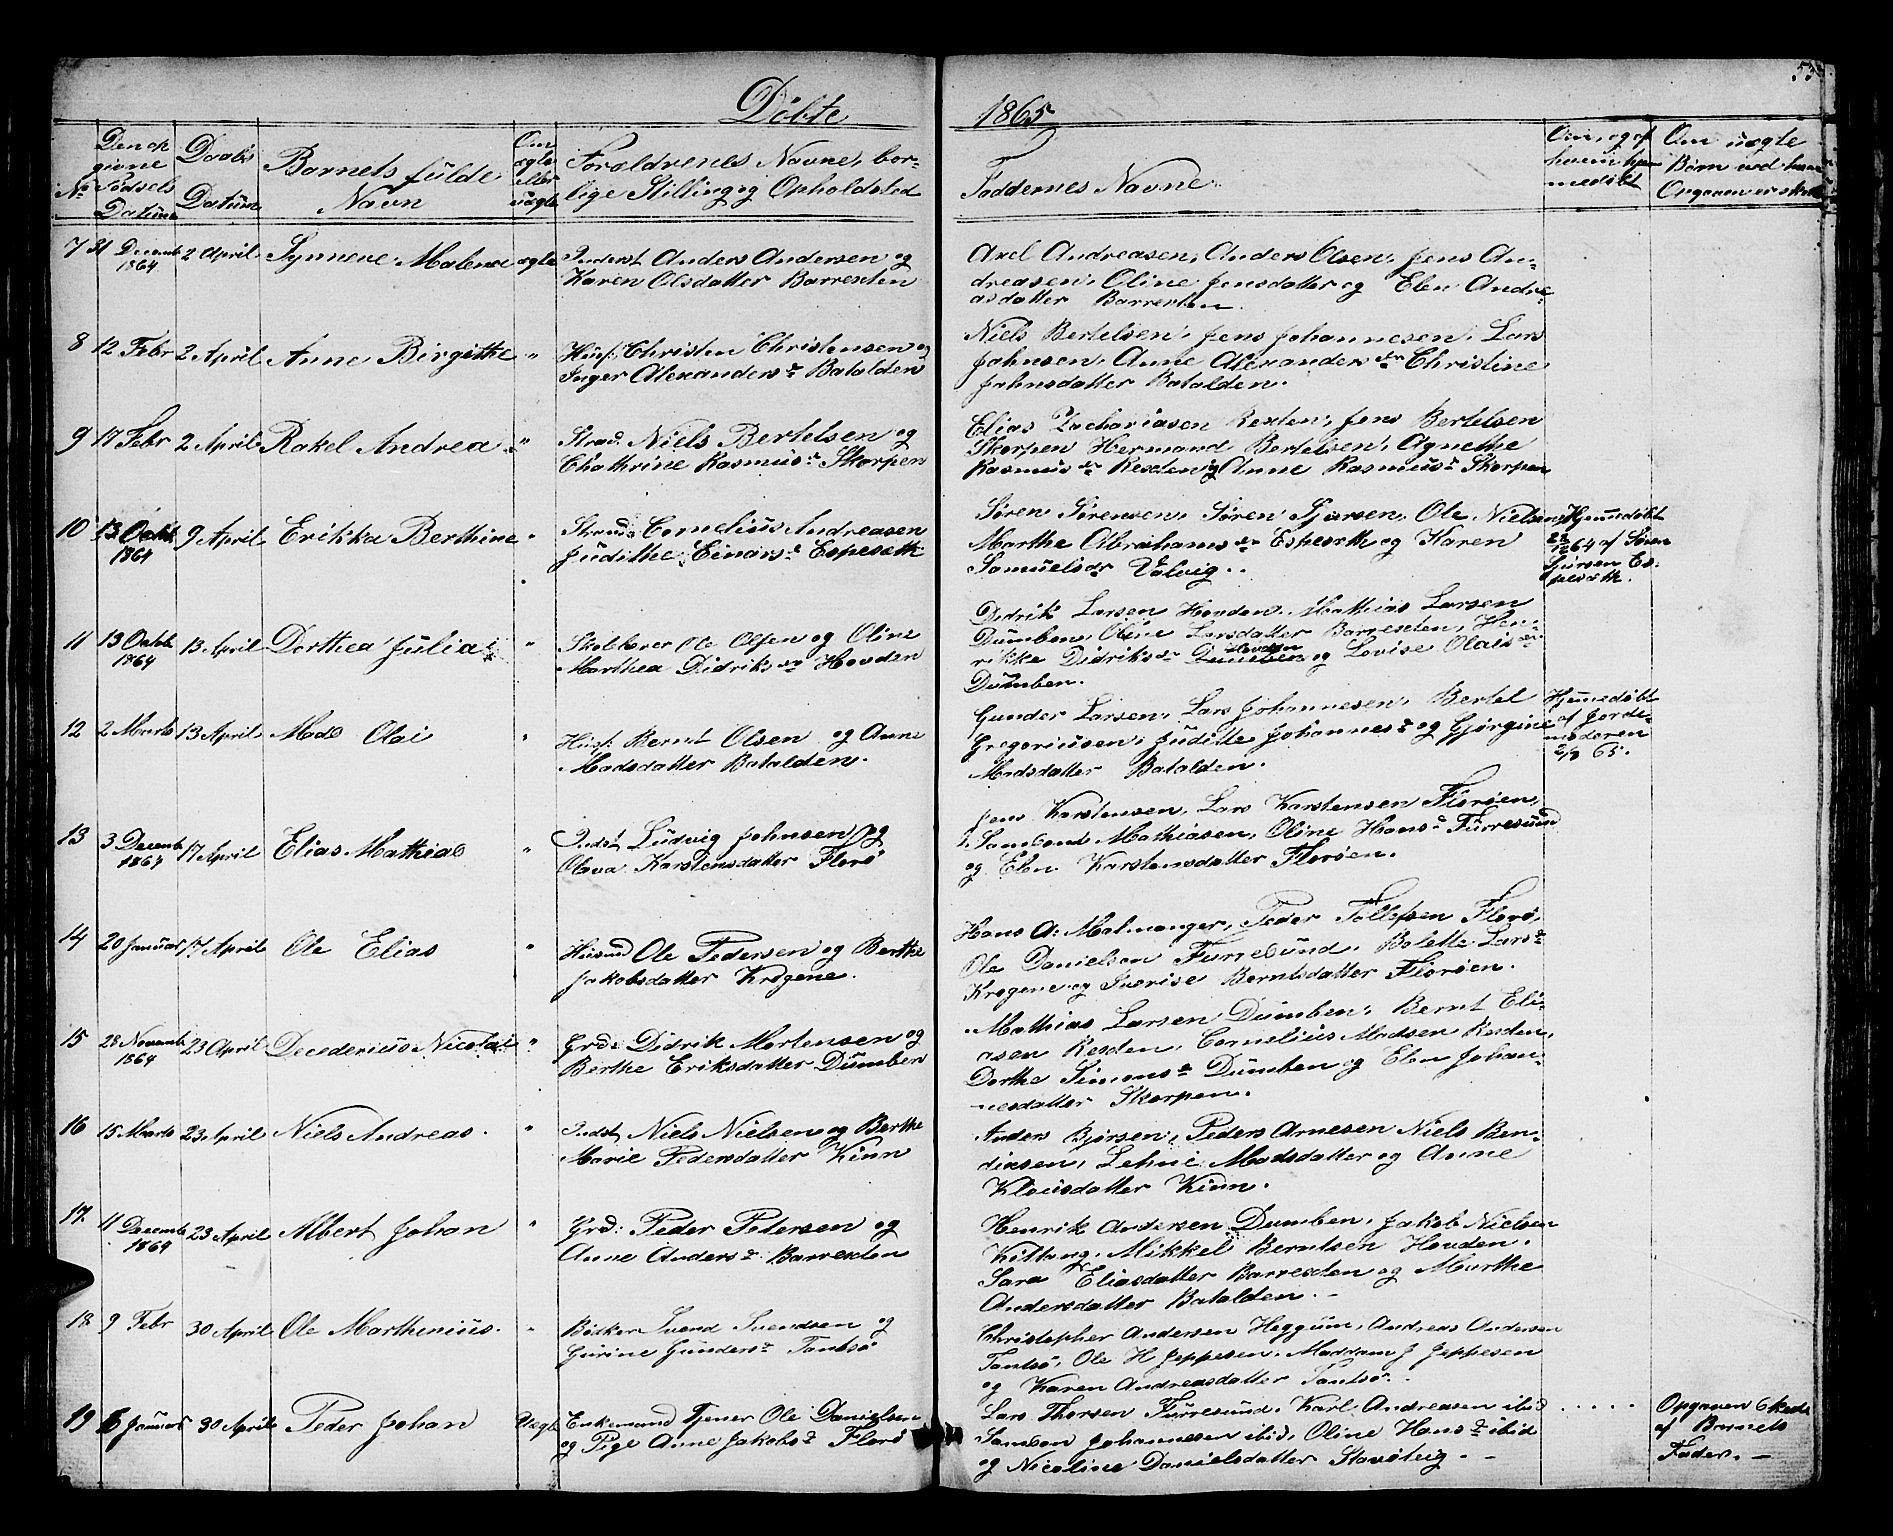 53
Döbte
1865
No
Den op
givne
Födsels
Datum
Daabs
Datum
Barnets fulde
Navn
Om
ægte
eller
uægte
Forældrenes Navne, bor-
lige Stilling og Opholdsted
Faddernes Navne
Om, og af
hvem hjem
medöbt
Om uægte
Börn ved hvem
Opgaven er skeet
7 31 Decemb 1864 2 April Synneve Malene ægte Inderst Anders Andersen og
Karen Olsdatter Barrexten
Axel Andreasen, Anders Olsen, Jens An-
dreasen, Oline Jensdatter og Elen Andre-
asdatter Barrexten.
8 12 Febr 2 April Anne Birgithe " Husf: Christen Christensen og
Inger Alexandersdr Batalden
Niels Bertelsen, Jens Johannesen, Lars
Jahnsen, Anne Alexandersdr Christine
Jahnsdatter Batalden.
9 17 Febr 2 April Rakel Andrea " Strad. Niels Bertelsen og
Chathrine Rasmusdr Skorpen
Elias Zachariasen Rexten, Jens Bertelsen
Skorpen Hermand Bertelsen, Agnethe
Rasmusdr Rexten og Anne Rasmusdr Skorpen
10 13 Octbr 1864 9 April Erikka Berthine " Strand: Cornelius Andreasen
Judithe Einarsdr Espeseth
Sören Sörensen, Sören Gjursen, Ole Nielsen,
Marthe Abrahamsdr Espeseth og Karen
Samuelsdr Valvig.
Hjemmedöbt
22/12 64 af Sören
Gjursen Es-
peseth.
11 13 Octbr 1864 13 April Dorthea Julia " Skolelærer Ole Olsen og Oline
Marthea Didriksdr Hovden
Didrik Larsen Hovden, Mathias Larsen
Dumben, Oline Larsdatter Barrexten, Hen-
rikke Didriksdr Hovden og Lovise Olaisdr
Dumben.
12 2 Marts 13 April Mads Olai " Husf: Bernt Olsen og Anne
Madsdatter Batalden.
Gunder Larsen, Lars Johannesen, Bertel
Gregoriussen, Juditte Johannesdr og Gjörgine
Madsdatter Batalden.
Hjemmedöbt
af Jorde-
moderen
2/3 65.
13 3 Decemb 1864 17 April Elias Mathias " Indst Ludvig Johnsen og
Olava Karstensdatter Florö
Jens Karstensen, Lars Karstensen Floröen,
Samsond Mathiasen, Oline Hansdr Furresund
og Elen Karstensdatter Floröen.
14 20 Januar 17 April Ole Elias " Husmd Ole Pedersen og Berthe
Jakobsdatter Krogene.
Hans A: Malmanger, Peder Tollefsen Florö,
Ole Danielsen Furresund, Bolette Larsdr
Krogene og Berntsdatter Floröen.
15 28 Novemb 1864 23 April Decederius Nicolai " Grd: Didrik Mortensen og
Berthe Eriksdatter Dumben
Mathias Larsen Dumben, Bernt Eli-
asen Rexten, Cornelius Madsen Rexten,
Dorthe Simonsdr Dumben og Elen Johan-
nesdatter Skorpen.
16 15 Marts 23 April Niels Andreas. " Indst Niels Nielsen og Berthe
Marie Pedersdatter Kinn
Anders Björsen, Peders Arnesen Niels Ben-
dixsen, Lehne Madsdatter og Anne
Klausdatter Kinn.
17. 11 Decemb 1864 23 April Albert Johan " Grd: Peder Petersen og
Anne Andersdr Barrexten
Henrik Andersen Dumben, Jakob Nielsen
Kittang, Mikkel Berntsen Hovden,
Sara Eliasdatter Barrexten og Marthe
Andersdatter Batalden. -
18 9 Febr 30 April Ole Marthenius. " Bödker Svend Svendsen og
Gurine Gundersdr Tansö
Christopher Andersen Heggum, Andreas Andersen
Tansö, Ole H Jeppesen, Maddam J Jeppesen
og Karen Andreasdatter Tansö.
19 6 Januar 30 April Peder Johan Uægte Enkemand Tjener Ole Danielsen
og Pige Anne Jakobsdr Florö
Lars Thorsen Furresund, Karl Andreasen ibid
Samson Johannesen ibid, Oline Hansdr ibid
og Nicoline Danielsdatter Stavöteig. -
. . . . .
Opgaven Skede
af Barnets
Fader. -